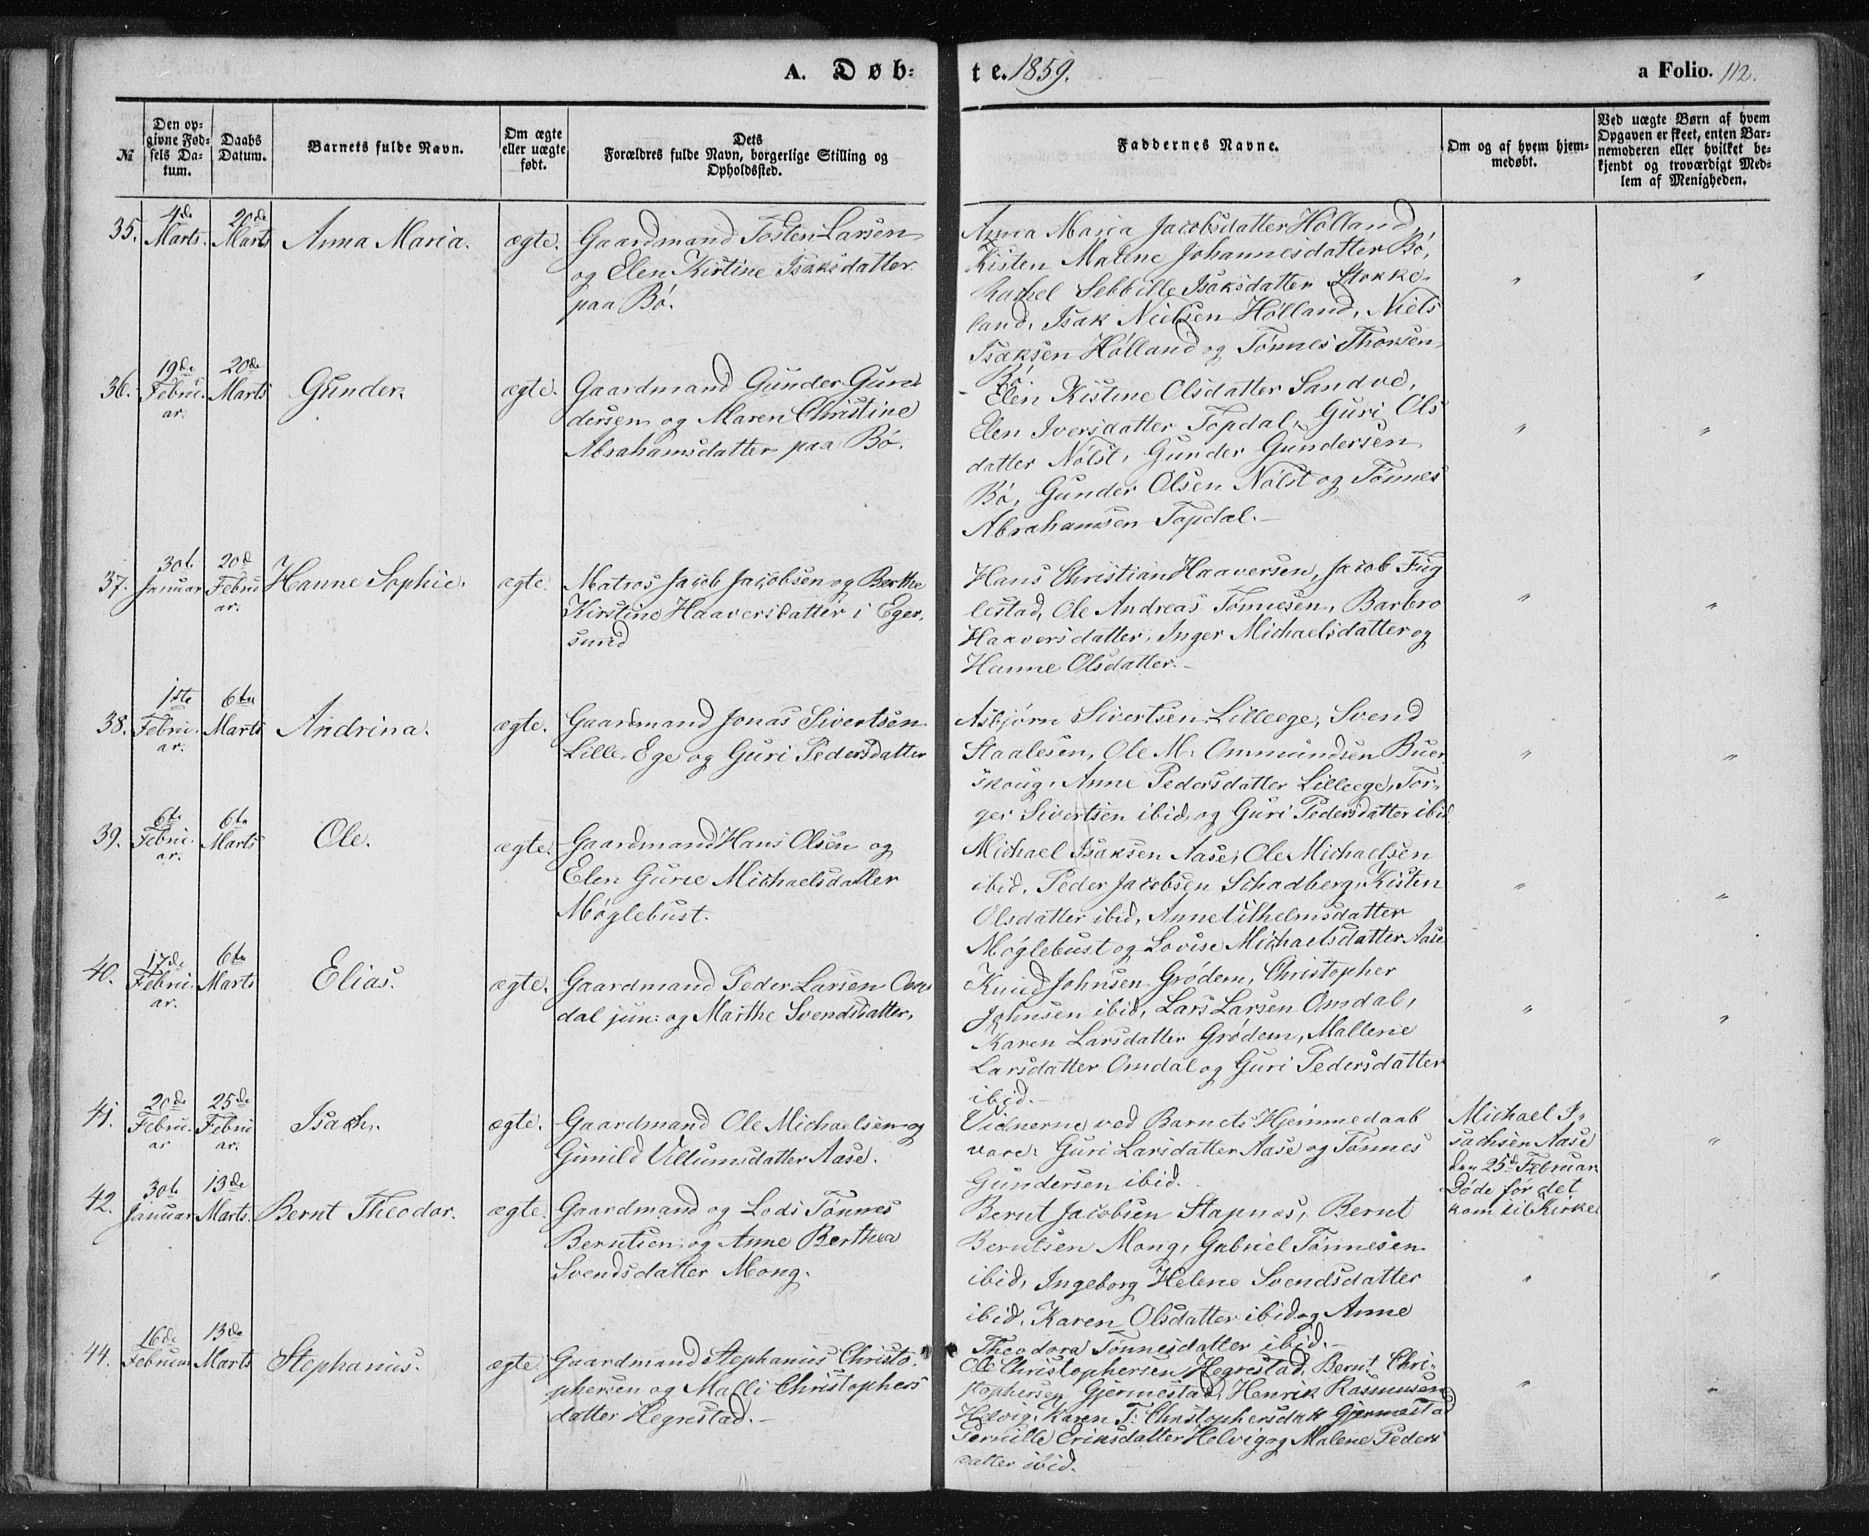 A. Døb-
te. 1859.
a Folio. 112.
№
Den op-
givne Fød-
sels Da-
tum.
Daabs
Datum.
Barnets fulde Navn.
Om ægte
eller uægte
født.
Dets
Forældres fulde Navn, borgerlige Stilling og
Opholdssted.
Faddernes Navne.
Om og af hvem hjem-
medøbt.
Ved uægte Børn af hvem
Opgaven er skeet, enten Bar-
nemoderen eller hvilket be-
kjendt og troværdigt Med-
lem af Menigheden.
35.
4de
Marts.
20de
Marts
Anna Maria.
ægte.
Gaardmand Tosten Larsen
og Elen Kirstine Isaksdatter
paa Bø.
Anna Maria Jacobsdatter Hølland,
Kisten Malene Johannesdatter Bø,
Rachel Sebbille Isaksdatter Stokke-
land, Isak Nielsen Hølland, Niels
Isaksen Hølland og Tønnes Thorsen
Bø.
"
"
36.
19de
Febru-
ar.
20de
Marts
Gunder.
ægte.
Gaardmand Gunder Gun-
dersen og Maren Christine
Abrahamsdatter paa Bø.
Elen Kistine Olsdatter Sandve,
Elen Iversdatter Topdal, Guri Ols
datter Nølst, Gunder Gundersen
Bø, Gunder Olsen Nølst og Tønnes
Abrahamsen Topdal.
"
"
37.
30t
Januar
20d
Febru
ar.
Hanne Sophie.
ægte.
Matros Jacob Jacobsen og Berthe
Kirstine Haaversdatter i Eger-
sund
Hans Christian Haaversen, Jacob Fug
lestad, Ole Andreas Tønnesen, Barbro
Haaversdatter, Inger Michaelsdatter og
Hanne Olsdatter.
"
"
38.
1ste
Febru-
ar.
6te
Marts
Andrina.
ægte.
Gaardmand Jonas Sivertsen
Lille-Ege og Guri Pedersdatter
Asbjørn Sivertsen Lilleege, Svend
Staalesen, Ole M. Ommundsen Buer
skoug, Anne Pedersdatter Lilleege, Tor-
ger Sivertsen ibid, og Guri Pedersdatter ibid
"
"
39.
6te
Febru-
ar.
6te
Marts
Ole.
ægte.
Gaardmand Hans Olsen og
Elen Gurie Michaelsdatter
Møglebust.
Michael Isaksen Aase, Ole Michaelsen
ibid, Peder Jacobsen Schadberg, Kisten
Olsdatter ibid, Anne Vilhelmsdatter
Møglebust og Lovise Michaelsdatter Aase
"
"
40.
17de
Febru-
ar.
6te
Marts
Elias.
ægte.
Gaardmand Peder Larsen Om-
dal jun: og Marthe Svendsdatter.
Knud Johnsen Grødem, Christopher
Johnsen ibid, Lars Larsen Omdal,
Karen Larsdatter Grødem, Mallene
Larsdatter Omdal og Guri Pedersdatter
ibid.
"
"
41.
20de
Febru-
ar
25de
Febru
ar.
Isach.
ægte.
Gaardmand Ole Michaelsen og
Gunild Villumsdatter Aase.
Vidnerne ved Barnets Hjemmedaab
vare: Guri Larsdatter Aase og Tønnes
Gundersen ibid.
Michael I-
sachsen Aase
den 25de Februar.
Døde før det
kom til Kirke
"
42.
30t
Januar
13de
Marts.
Bernt Theodor.
ægte.
Gaardmand og Lods Tønnes
Berntsen og Anne Berthea
Svendsdatter Mong.
Bernt Jacobsen Stapnes, Bernt
Berntsen Mong, Gabriel Tønnesen
ibid, Ingeborg Helene Svendsdatter
ibid, Karen Olsdatter ibid og Anne
Theodora Tønnesdatter ibid.
"
"
44.
16de
Februar
13de
Marts
Stephanus.
ægte.
Gaardmand Stephanus Christo-
phersen og Malli Christophers
datter Hegrestad.
Ole Christophersen Hegrestad, Bernt Chri-
stophersen Gjermestad, Henrik Rasmusen
Helvig, Karen T: Christophersdatt Gjermestad
Pernille Eriksdatter Helvig og Malene Peders
datter ibid.
"
"